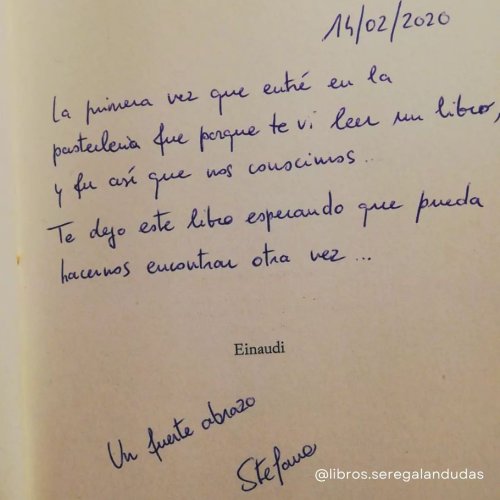 14/02/2020
La primera vez que entré en la
pastelería fue porque te vi leer un libro,
y fu así que nos conscimos..
Te dejo este libro esperando que pueda
hacernos encontrar otra vez ...
Einaudi
Un fuerte abrazo
Stefano
@libros.seregalandudas